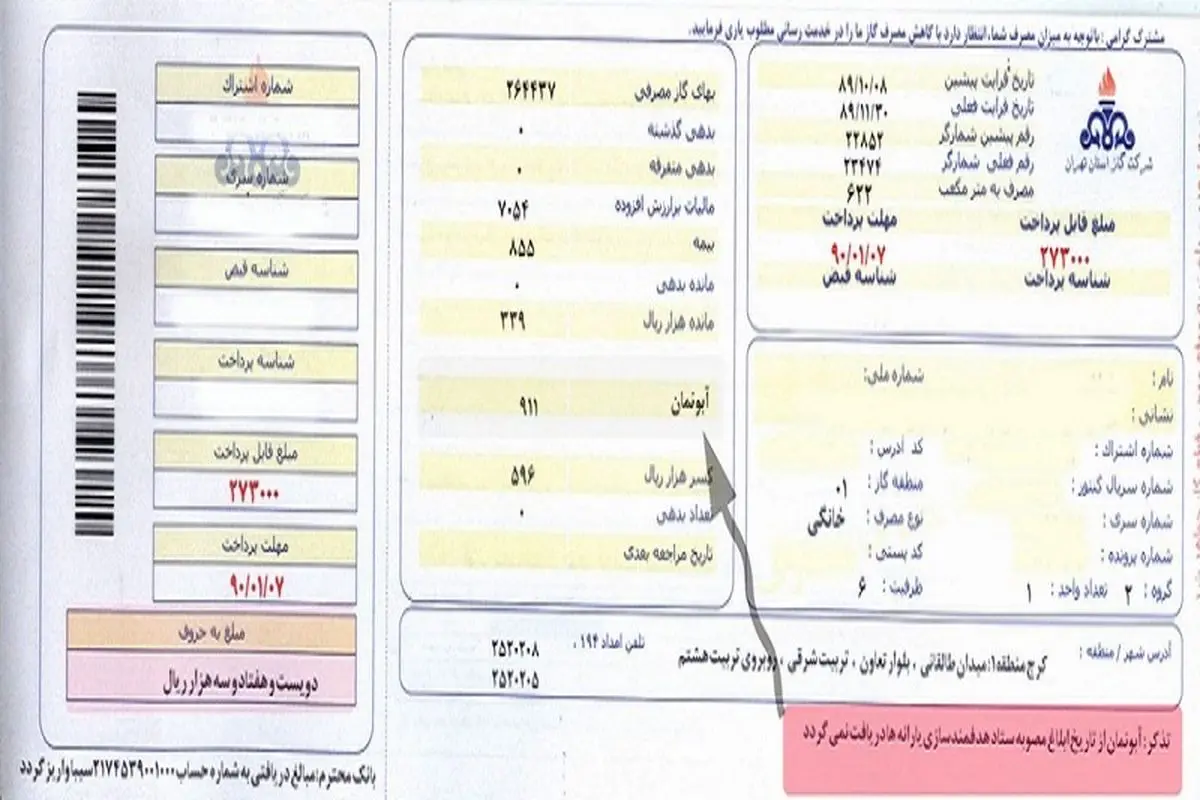 مشترک گرامی : باتوجه به میزان مصرف شما، انتظار دارد با کاهش مصرف گاز ما را در خدمت رسانی مطلوب یاری فرمایید.
شرکت گاز استان تهران
تاریخ قرایت پیشین ۸۹/۱۰/۰۸
تاریخ قرایت فعلی ۸۹/۱۱/۳۰
رقم پیشین شمارگر ۲۲۸۵۲
رقم فعلی شمارگر ۲۳۴۷۴
مصرف به متر مکعب ۶۲۲
مبلغ قابل پرداخت مهلت پرداخت
۲۷۳۰۰۰ ۹۰/۰۱/۰۷
شناسه پرداخت شناسه قبض
نام : شماره ملی:
نشانی :
شماره اشتراک : کد آدرس :
شماره سریال کنتور : منطقه گاز : ۰۱
شماره سری : نوع مصرف : خانگی
شماره پرونده : کد پستی :
گروه : ۲ تعداد واحد : ۱ ظرفیت : ۶
بهای گاز مصرفی ۲۶۴۴۳۷
بدهی گذشته ۰
بدهی متفرقه ۰
مالیات برارزش افزوده ۷۰۵۴
بیمه ۸۵۵
مانده بدهی ۰
مانده هزار ریال ۳۳۹
آبونمان ۹۱۱
کسر هزار ریال ۵۹۶
تعداد بدهی ۰
تاریخ مراجعه بعدی
آدرس شهر / منطقه : کرج منطقه ۱: میدان طالقانی ، بلوار تعاون ، تربیت شرقی ، روبروی تربیت هشتم
تلفن امداد ۱۹۴ ، ۲۵۲۰۲۰۸
۲۵۲۰۲۰۵
تذکر: آبونمان از تاریخ ابلاغ مصوبه ستاد هدفمندسازی یارانه ها دریافت نمی گردد
شماره اشتراک
شماره سری
شناسه قبض
شناسه پرداخت
مبلغ قابل پرداخت
۲۷۳۰۰۰
مهلت پرداخت
۹۰/۰۱/۰۷
مبلغ به حروف
دویست و هفتاد و سه هزار ریال
بانک محترم: مبالغ دریافتی به شماره حساب ۲۱۷۴۵۳۹۰۰۱۰۰۰ سیبا واریز گردد